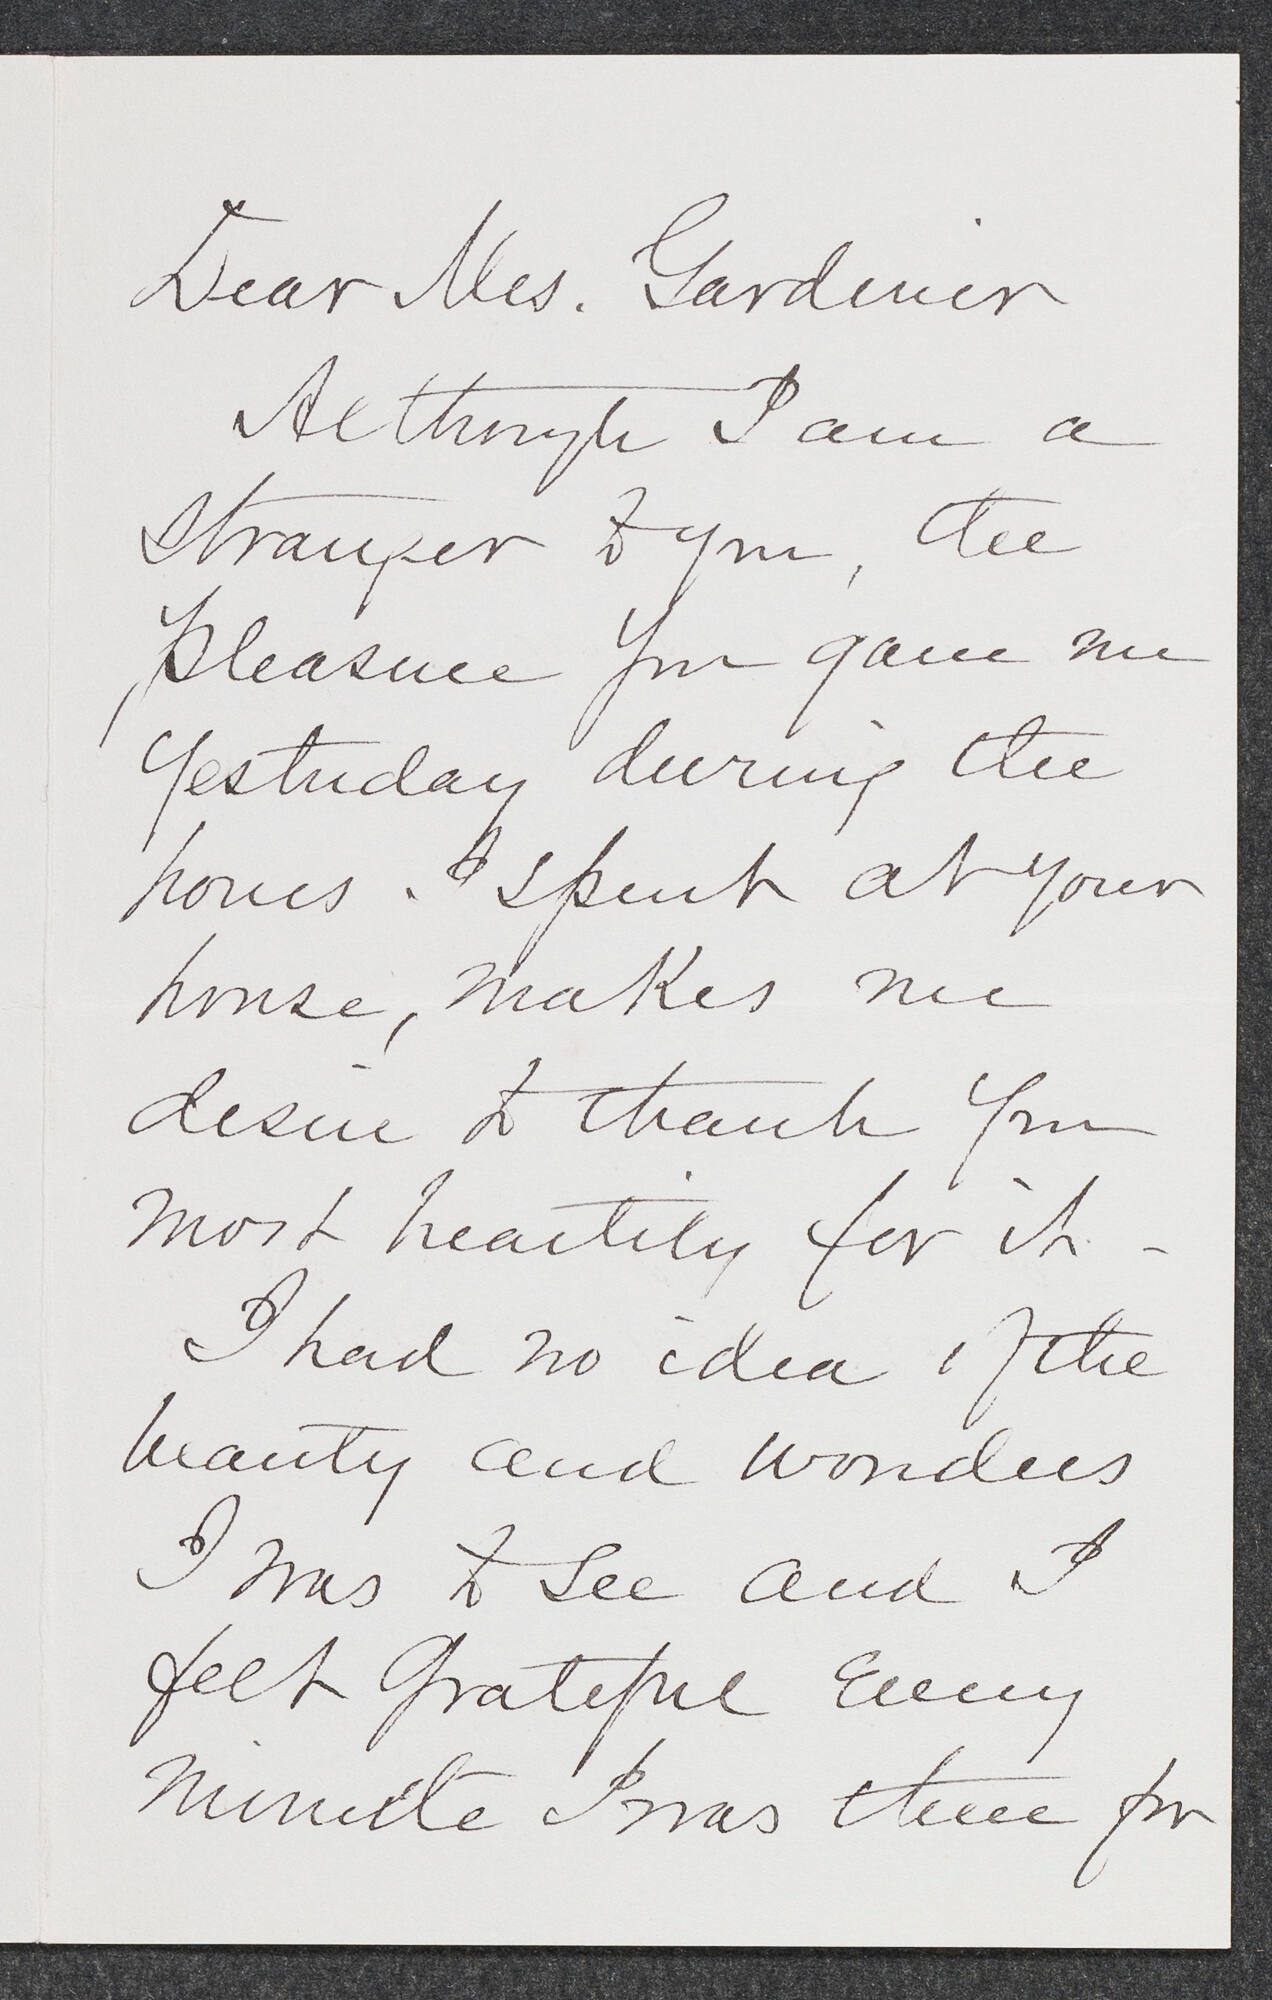 Dear Mrs. Gardiner
Although I am a
stranger to you, the
pleasure you gave me
yesterday during the
hours I spent at your
house, makes me
desire to thank you
most heartily for it -
I had no idea of the
beauty and wonders
I was to see and I
felt grateful every
minute I was there for